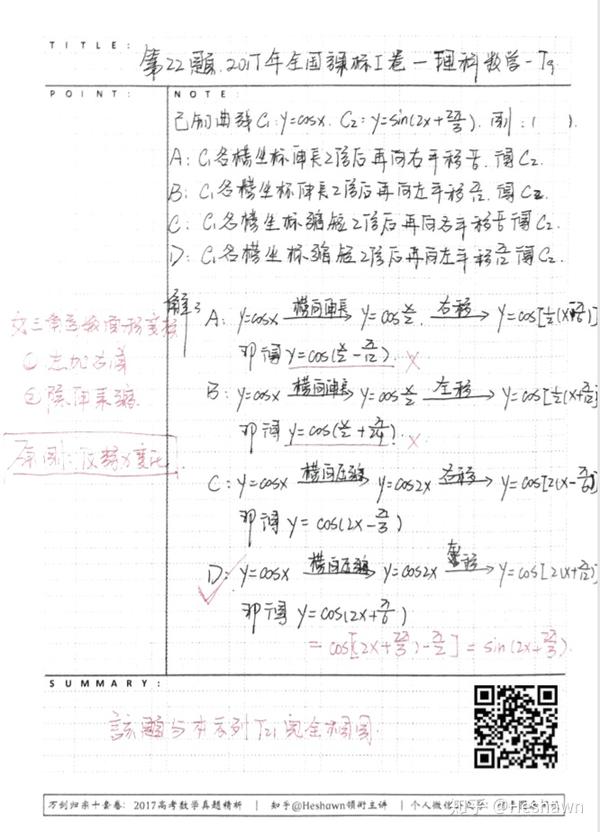 TITLE:
第22题.2017年全国课标I卷一理科数学-T9
POINT:
NOTE:
已知曲线C₁:y=cosx. C₂:y=sin(2x+2π/3). 则:( ).
A:C₁各横坐标伸长2倍后再向右平移π/6.得C₂.
B:C₁各横坐标伸长2倍后再向左平移π/12.得C₂.
C:C₁各横坐标缩短2倍后再向右平移π/6得C₂.
D:C₁各横坐标缩短2倍后再向左平移π/12得C₂.
解:
A: y=cosx 横向伸长→ y=cos x/2. 右移→ y=cos[½(x-π/6)]
即得 y=cos(x/2-π/12). ×
B: y=cosx 横向伸长→ y=cos x/2 左移→ y=cos[½(x+π/12)]
即得 y=cos(x/2+π/24). ×
C: y=cosx 横向压缩→ y=cos2x 右移→ y=cos[2(x-π/6)]
即得 y=cos(2x-π/3)
D: y=cosx 横向压缩→ y=cos2x 左移→ y=cos[2(x+π/12)]
✓
即得 y=cos(2x+π/6)
=cos[(2x+2π/3)-π/2]=sin(2x+2π/3).
三角函数图形变换
①左加右减
②除伸乘缩
原则:仅对x变化.
SUMMARY:
該题与本系列T21完全相同.
万剑归宗十套卷:2017高考数学真题精析 | 知乎@Heshawn领衔主讲 | 个人微信
知乎 @Heshawn